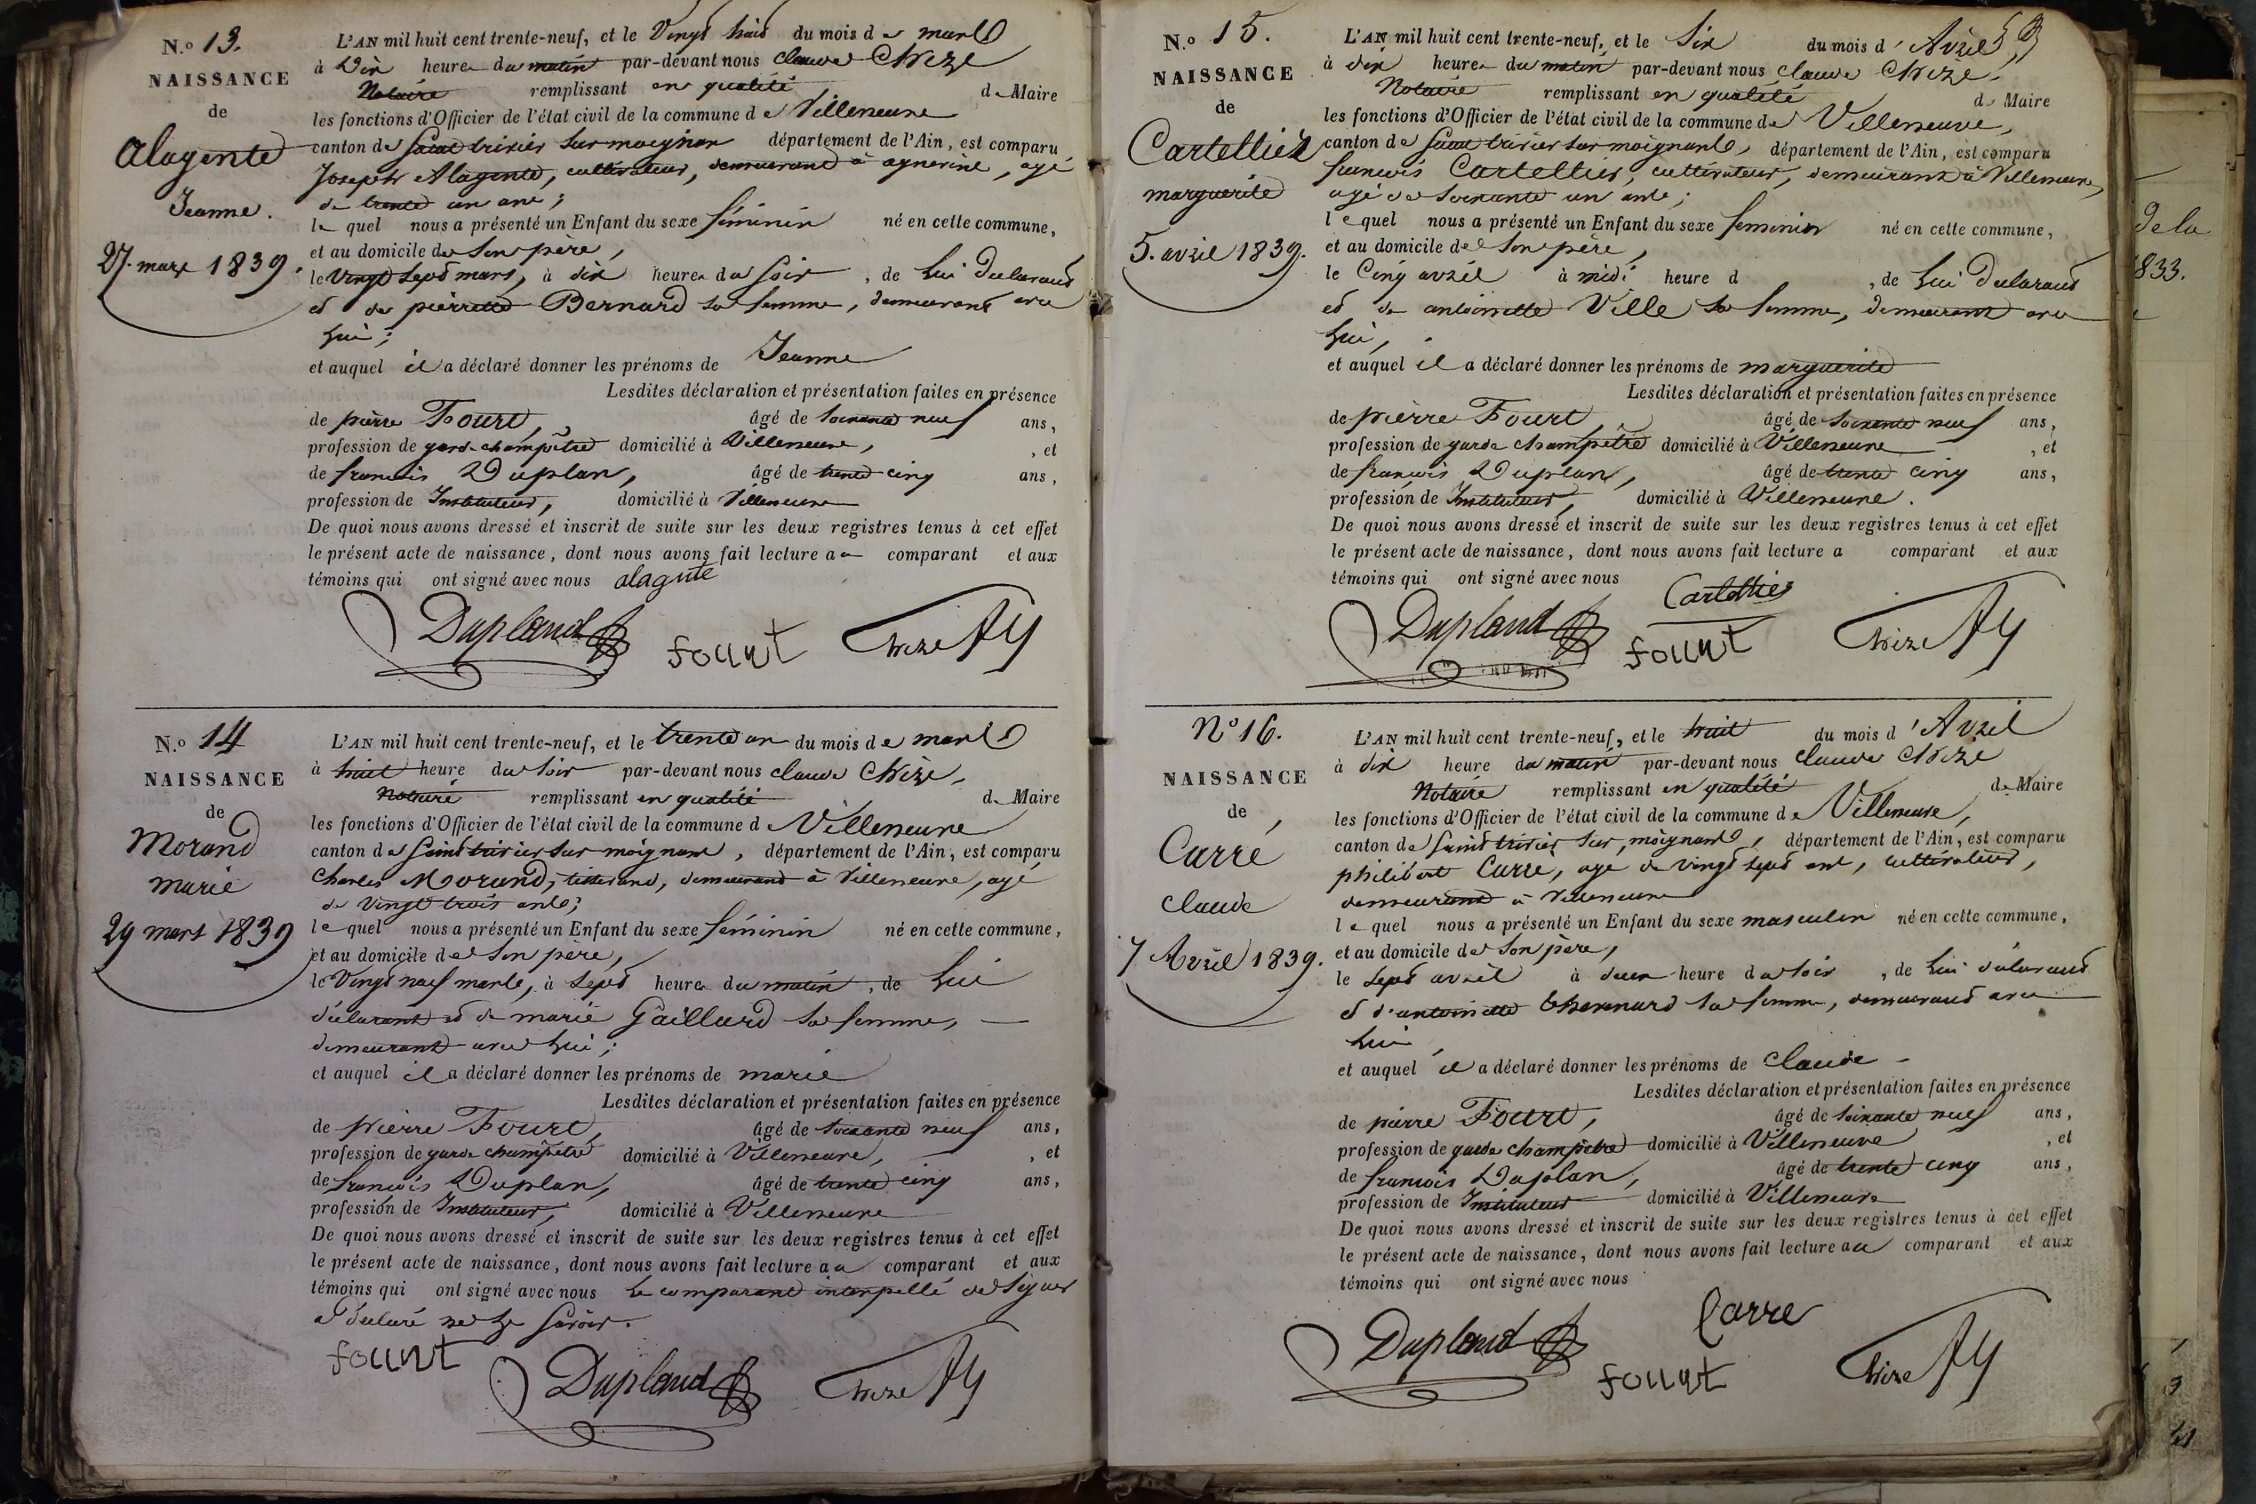 N.o 13.
NAISSANCE
de
Alagente
Jeanne.
27. mars 1839.
L'AN mil huit cent trente-neuf, et le Vingt huit du mois de mars
à Dix heures du matin par-devant nous Claude Chize
Notaire remplissant en qualité de Maire
les fonctions d'Officier de l'état civil de la commune de Villeneuve
canton de Saint trivier sur moignan département de l'Ain, est comparu
Joseph Alagente, cultivateur, demeurant à agnerine, agé
de trente un ans;
le quel nous a présenté un Enfant du sexe féminin né en cette commune,
et au domicile de son père,
le Vingt sept mars, à dix heures du soir, de lui déclarant
et de pierrette Bernard sa femme, demeurant avec
lui;
et auquel il a déclaré donner les prénoms de Jeanne
Lesdites déclaration et présentation faites en présence
de pierre Fourt, âgé de soixante neuf ans,
profession de garde champêtre domicilié à Villeneuve, , et
de francois Duplan, âgé de trente cinq ans,
profession de Instituteur, domicilié à Villeneuve
De quoi nous avons dressé et inscrit de suite sur les deux registres tenus à cet effet
le présent acte de naissance, dont nous avons fait lecture au comparant et aux
témoins qui ont signé avec nous alagnte
Dupland fount Chize
N.o 14
NAISSANCE
de
Morand
marie
29 mars 1839
L'AN mil huit cent trente-neuf, et le trente un du mois de mars
à huit heure du soir par-devant nous claude Chize,
Notaire remplissant en qualité de Maire
les fonctions d'Officier de l'état civil de la commune de Villeneuve
canton de Saint trivier sur moignans, département de l'Ain, est comparu
Charles Morand, tisserand, demeurant à Villeneuve, agé
de vingt trois ans;
le quel nous a présenté un Enfant du sexe féminin né en cette commune,
et au domicile de son père,
le Vingt neuf mars, à sept heures du matin, de lui
déclarant et de marie Gaillard sa femme,
demeurant avec lui;
et auquel il a déclaré donner les prénoms de marie
Lesdites déclaration et présentation faites en présence
de pierre Fourt, âgé de soixante neuf ans,
profession de garde champêtre domicilié à Villeneuve, , et
de francois Duplan, âgé de trente cinq ans,
profession de Instituteur, domicilié à Villeneuve
De quoi nous avons dressé et inscrit de suite sur les deux registres tenus à cet effet
le présent acte de naissance, dont nous avons fait lecture au comparant et aux
témoins qui ont signé avec nous le comparant interpellé de signer
a déclaré ne le savoir.
fount Dupland Chize
N.o 15.
NAISSANCE
de
Cartellier
marguerite
5. avril 1839.
L'AN mil huit cent trente-neuf, et le Six du mois d'Avril
à dix heures du matin par-devant nous claude Chize,
Notaire remplissant en qualité de Maire
les fonctions d'Officier de l'état civil de la commune de Villeneuve,
canton de Saint trivier sur moignans, département de l'Ain, est comparu
francois Cartellier, cultivateur, demeurant à Villeneuve,
agé de soixante un ans;
le quel nous a présenté un Enfant du sexe feminin né en cette commune,
et au domicile de son père,
le Cinq avril à midi heure d , de lui déclarant
et de antoinette Ville sa femme, demeurant avec
lui,
et auquel il a déclaré donner les prénoms de marguerite
Lesdites déclaration et présentation faites en présence
de pierre Fourt, âgé de soixante neuf ans,
profession de garde champêtre domicilié à Villeneuve , et
de francois Duplan, âgé de trente cinq ans,
profession de Instituteur, domicilié à Villeneuve.
De quoi nous avons dressé et inscrit de suite sur les deux registres tenus à cet effet
le présent acte de naissance, dont nous avons fait lecture a comparant et aux
témoins qui ont signé avec nous
Cartellier
Dupland fount Chize
N.o 16.
NAISSANCE
de
Carré
claude
7 Avril 1839.
L'AN mil huit cent trente-neuf, et le huit du mois d'Avril
à dix heure du matin par-devant nous Claude Chize
Notaire remplissant en qualité de Maire
les fonctions d'Officier de l'état civil de la commune de Villeneuve,
canton de Saint trivier sur moignans, département de l'Ain, est comparu
philibert Carré, age de vingt sept ans, cultivateur,
demeurant à Villeneuve
le quel nous a présenté un Enfant du sexe masculin né en cette commune,
et au domicile de son père,
le sept avril à deux heure du soir, de lui déclarant
et d'antoinette sa femme, demeurant avec
lui,
et auquel il a déclaré donner les prénoms de claude
Lesdites déclaration et présentation faites en présence
de pierre Fourt, âgé de soixante neuf ans,
profession de garde champêtre domicilié à Villeneuve , et
de francois Duplan, âgé de trente cinq ans,
profession de Instituteur domicilié à Villeneuve
De quoi nous avons dressé et inscrit de suite sur les deux registres tenus à cet effet
le présent acte de naissance, dont nous avons fait lecture au comparant et aux
témoins qui ont signé avec nous
Carre
Dupland fount Chize
de la
1833.